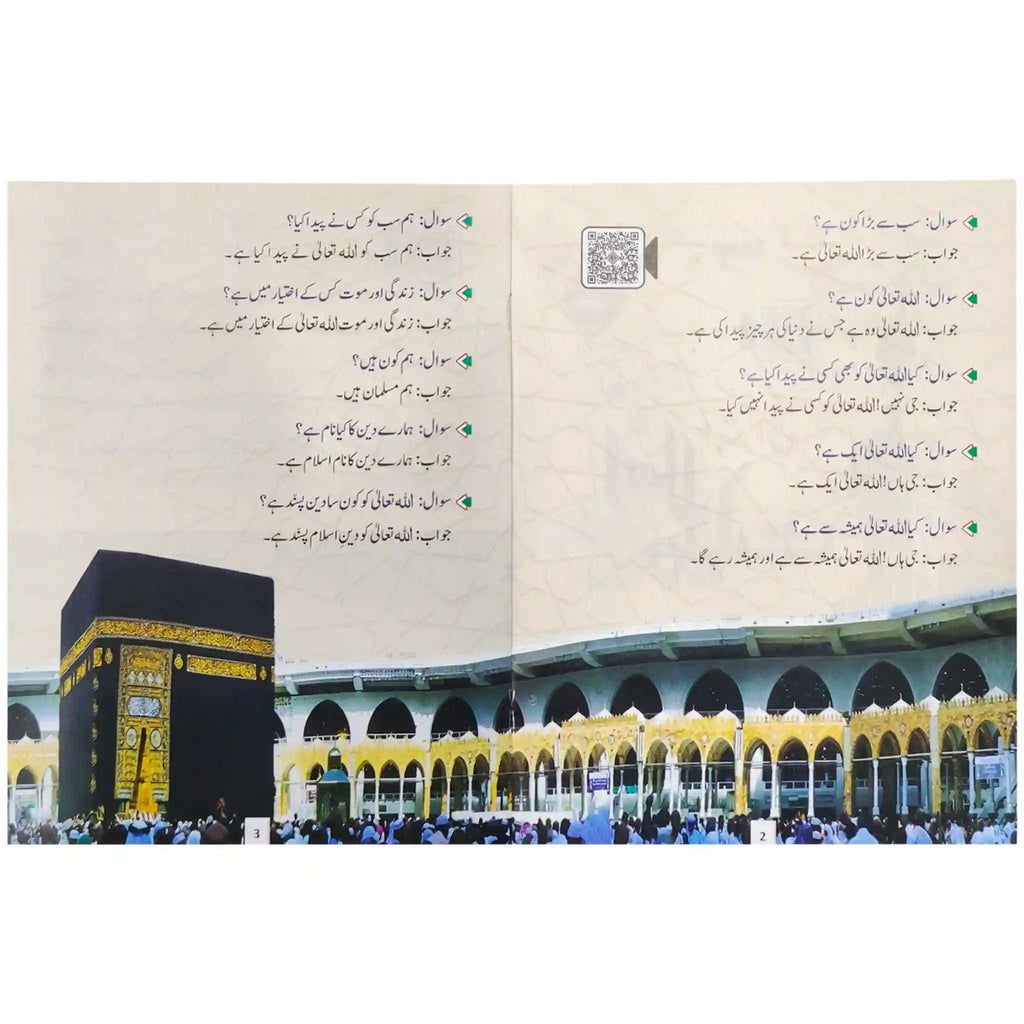 سوال: سب سے بڑا کون ہے؟
جواب: سب سے بڑا اللہ تعالیٰ ہے۔
سوال: اللہ تعالیٰ کون ہے؟
جواب: اللہ تعالیٰ وہ ہے جس نے دنیا کی ہر چیز پیدا کی ہے۔
سوال: کیا اللہ تعالیٰ کو بھی کسی نے پیدا کیا ہے؟
جواب: جی نہیں! اللہ تعالیٰ کو کسی نے پیدا نہیں کیا۔
سوال: کیا اللہ تعالیٰ ایک ہے؟
جواب: جی ہاں! اللہ تعالیٰ ایک ہے۔
سوال: کیا اللہ تعالیٰ ہمیشہ سے ہے؟
جواب: جی ہاں! اللہ تعالیٰ ہمیشہ سے ہے اور ہمیشہ رہے گا۔
2
سوال: ہم سب کو کس نے پیدا کیا؟
جواب: ہم سب کو اللہ تعالیٰ نے پیدا کیا ہے۔
سوال: زندگی اور موت کس کے اختیار میں ہے؟
جواب: زندگی اور موت اللہ تعالیٰ کے اختیار میں ہے۔
سوال: ہم کون ہیں؟
جواب: ہم مسلمان ہیں۔
سوال: ہمارے دین کا کیا نام ہے؟
جواب: ہمارے دین کا نام اسلام ہے۔
سوال: اللہ تعالیٰ کو کون سا دین پسند ہے؟
جواب: اللہ تعالیٰ کو دینِ اسلام پسند ہے۔
3